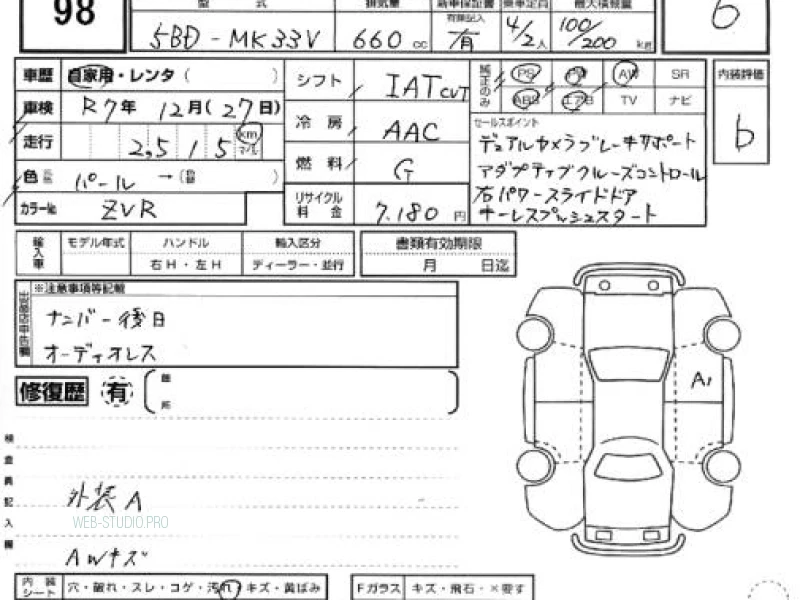 98
型 式
排気量
新車保証書
乗車定員
最大積載量
有無記入
5BD-MK33V
660 cc
有
4/2人
100/200 kg
6
車歴 自家用・レンタ( )
車検 R7年 12月(27日)
走行 2,515 km マイル
色 パール →( )
カラーNo. ZVR
シフト IAT CVT
冷房 AAC
燃料 G
リサイクル料金 7.180 円
純正のみ
PS PW AW SR
ABS エアB TV ナビ
内装評価
b
セールスポイント
デュアルカメラブレーキサポート
アダプティブクルーズコントロール
右パワースライドドア
キーレスプッシュスタート
輸入車
モデル年式
ハンドル
右H・左H
輸入区分
ディーラー・並行
書類有効期限
月 日迄
※注意事項等記載
ナンバー後日
オーディオレス
修復歴 有
箇所
A1
検査員記入欄
外装A
WEB-STUDIO.PRO
AWキズ
内装シート 穴・破れ・スレ・コゲ・汚れ・キズ・黄ばみ
Fガラス キズ・飛石・×要す